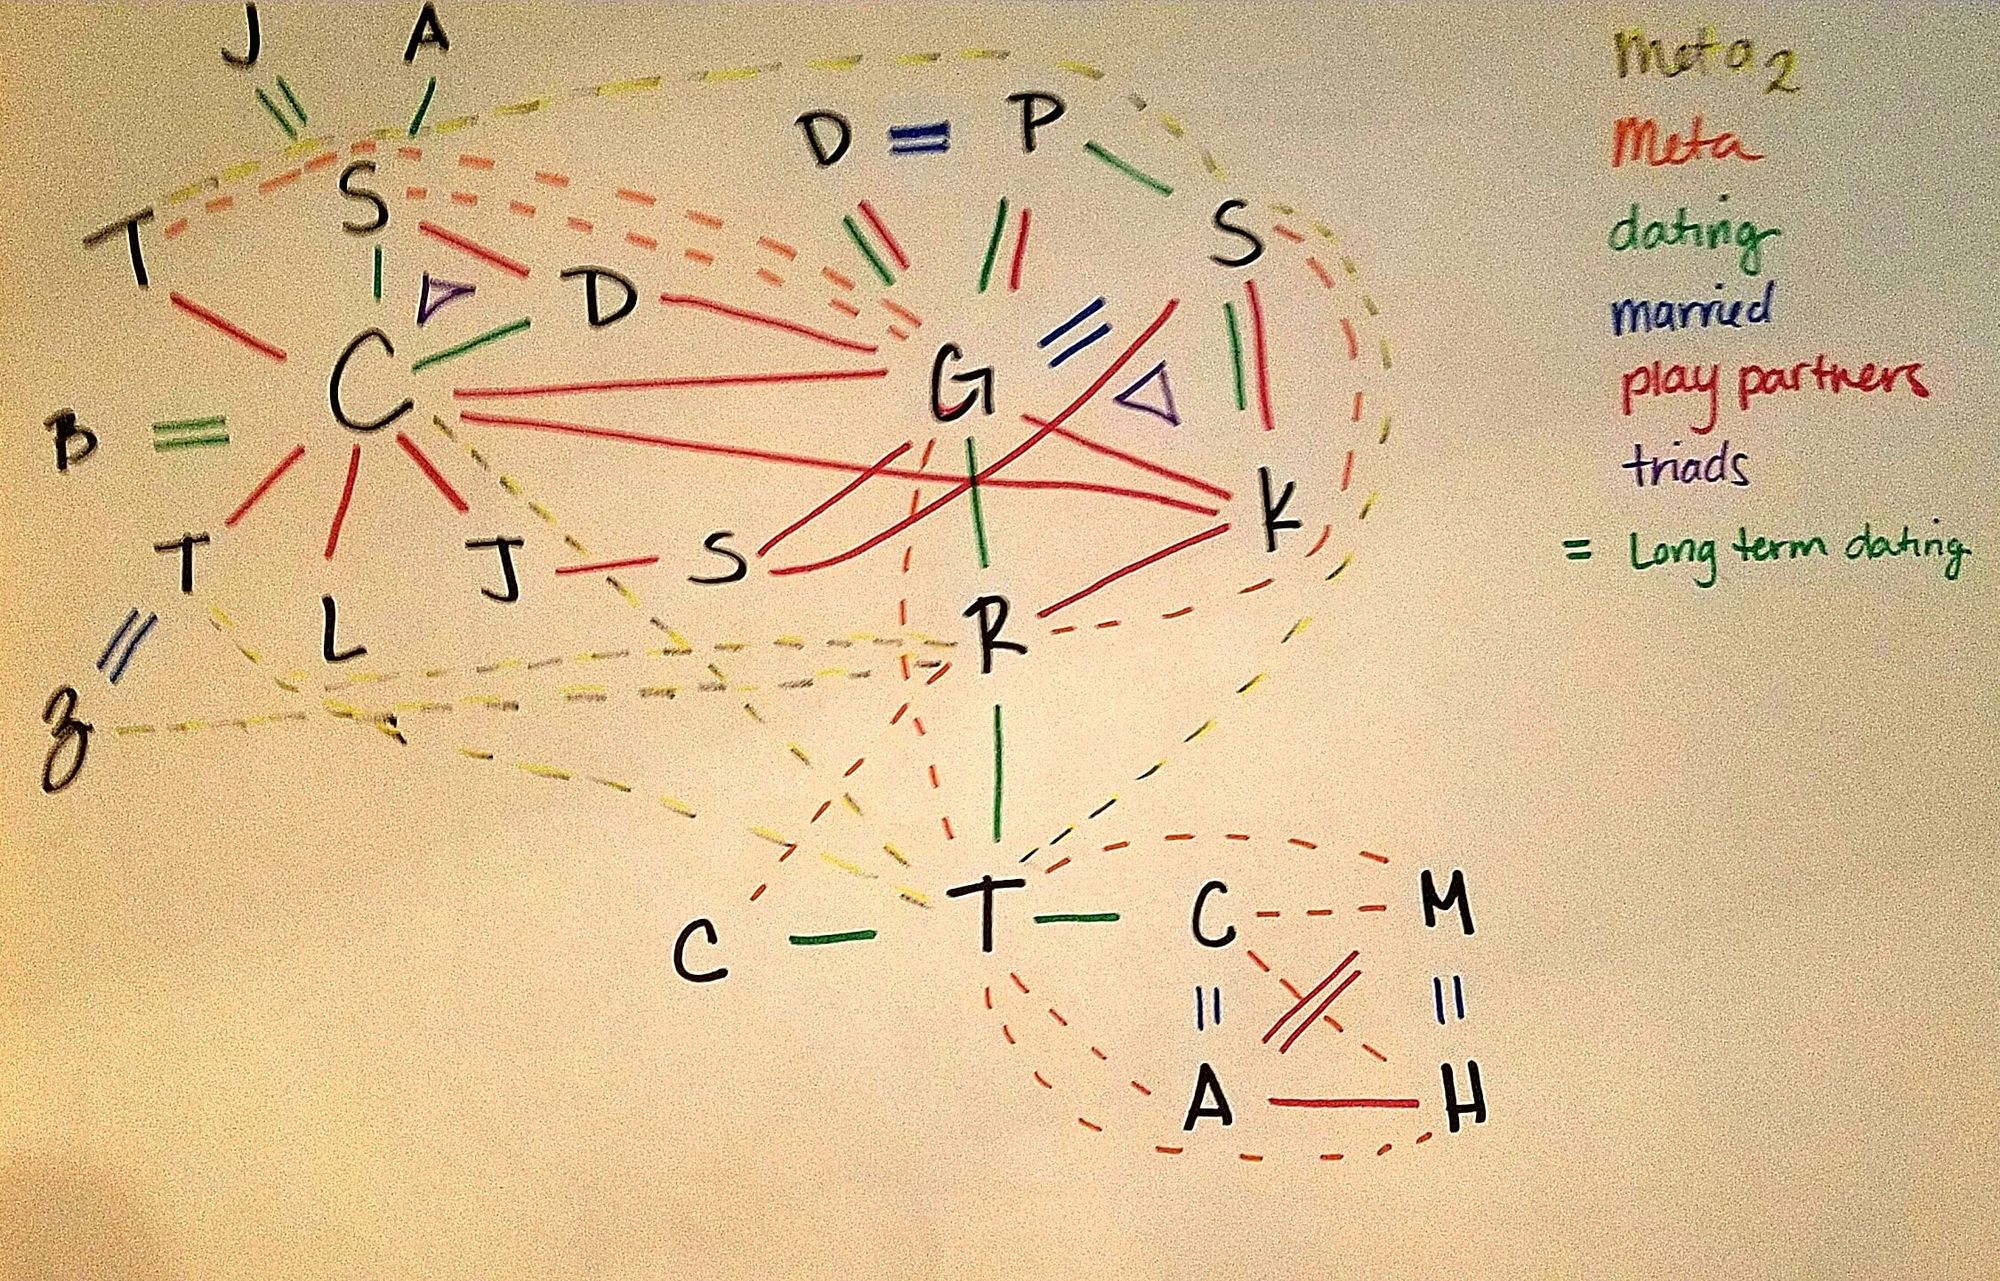 J A
Meta 2
Meta
D = P
S
T
S
dating
D
married
C
G
play partners
B
triads
K
T
J
S
= Long term dating
L
R
Z
T
C
M
C
A
H